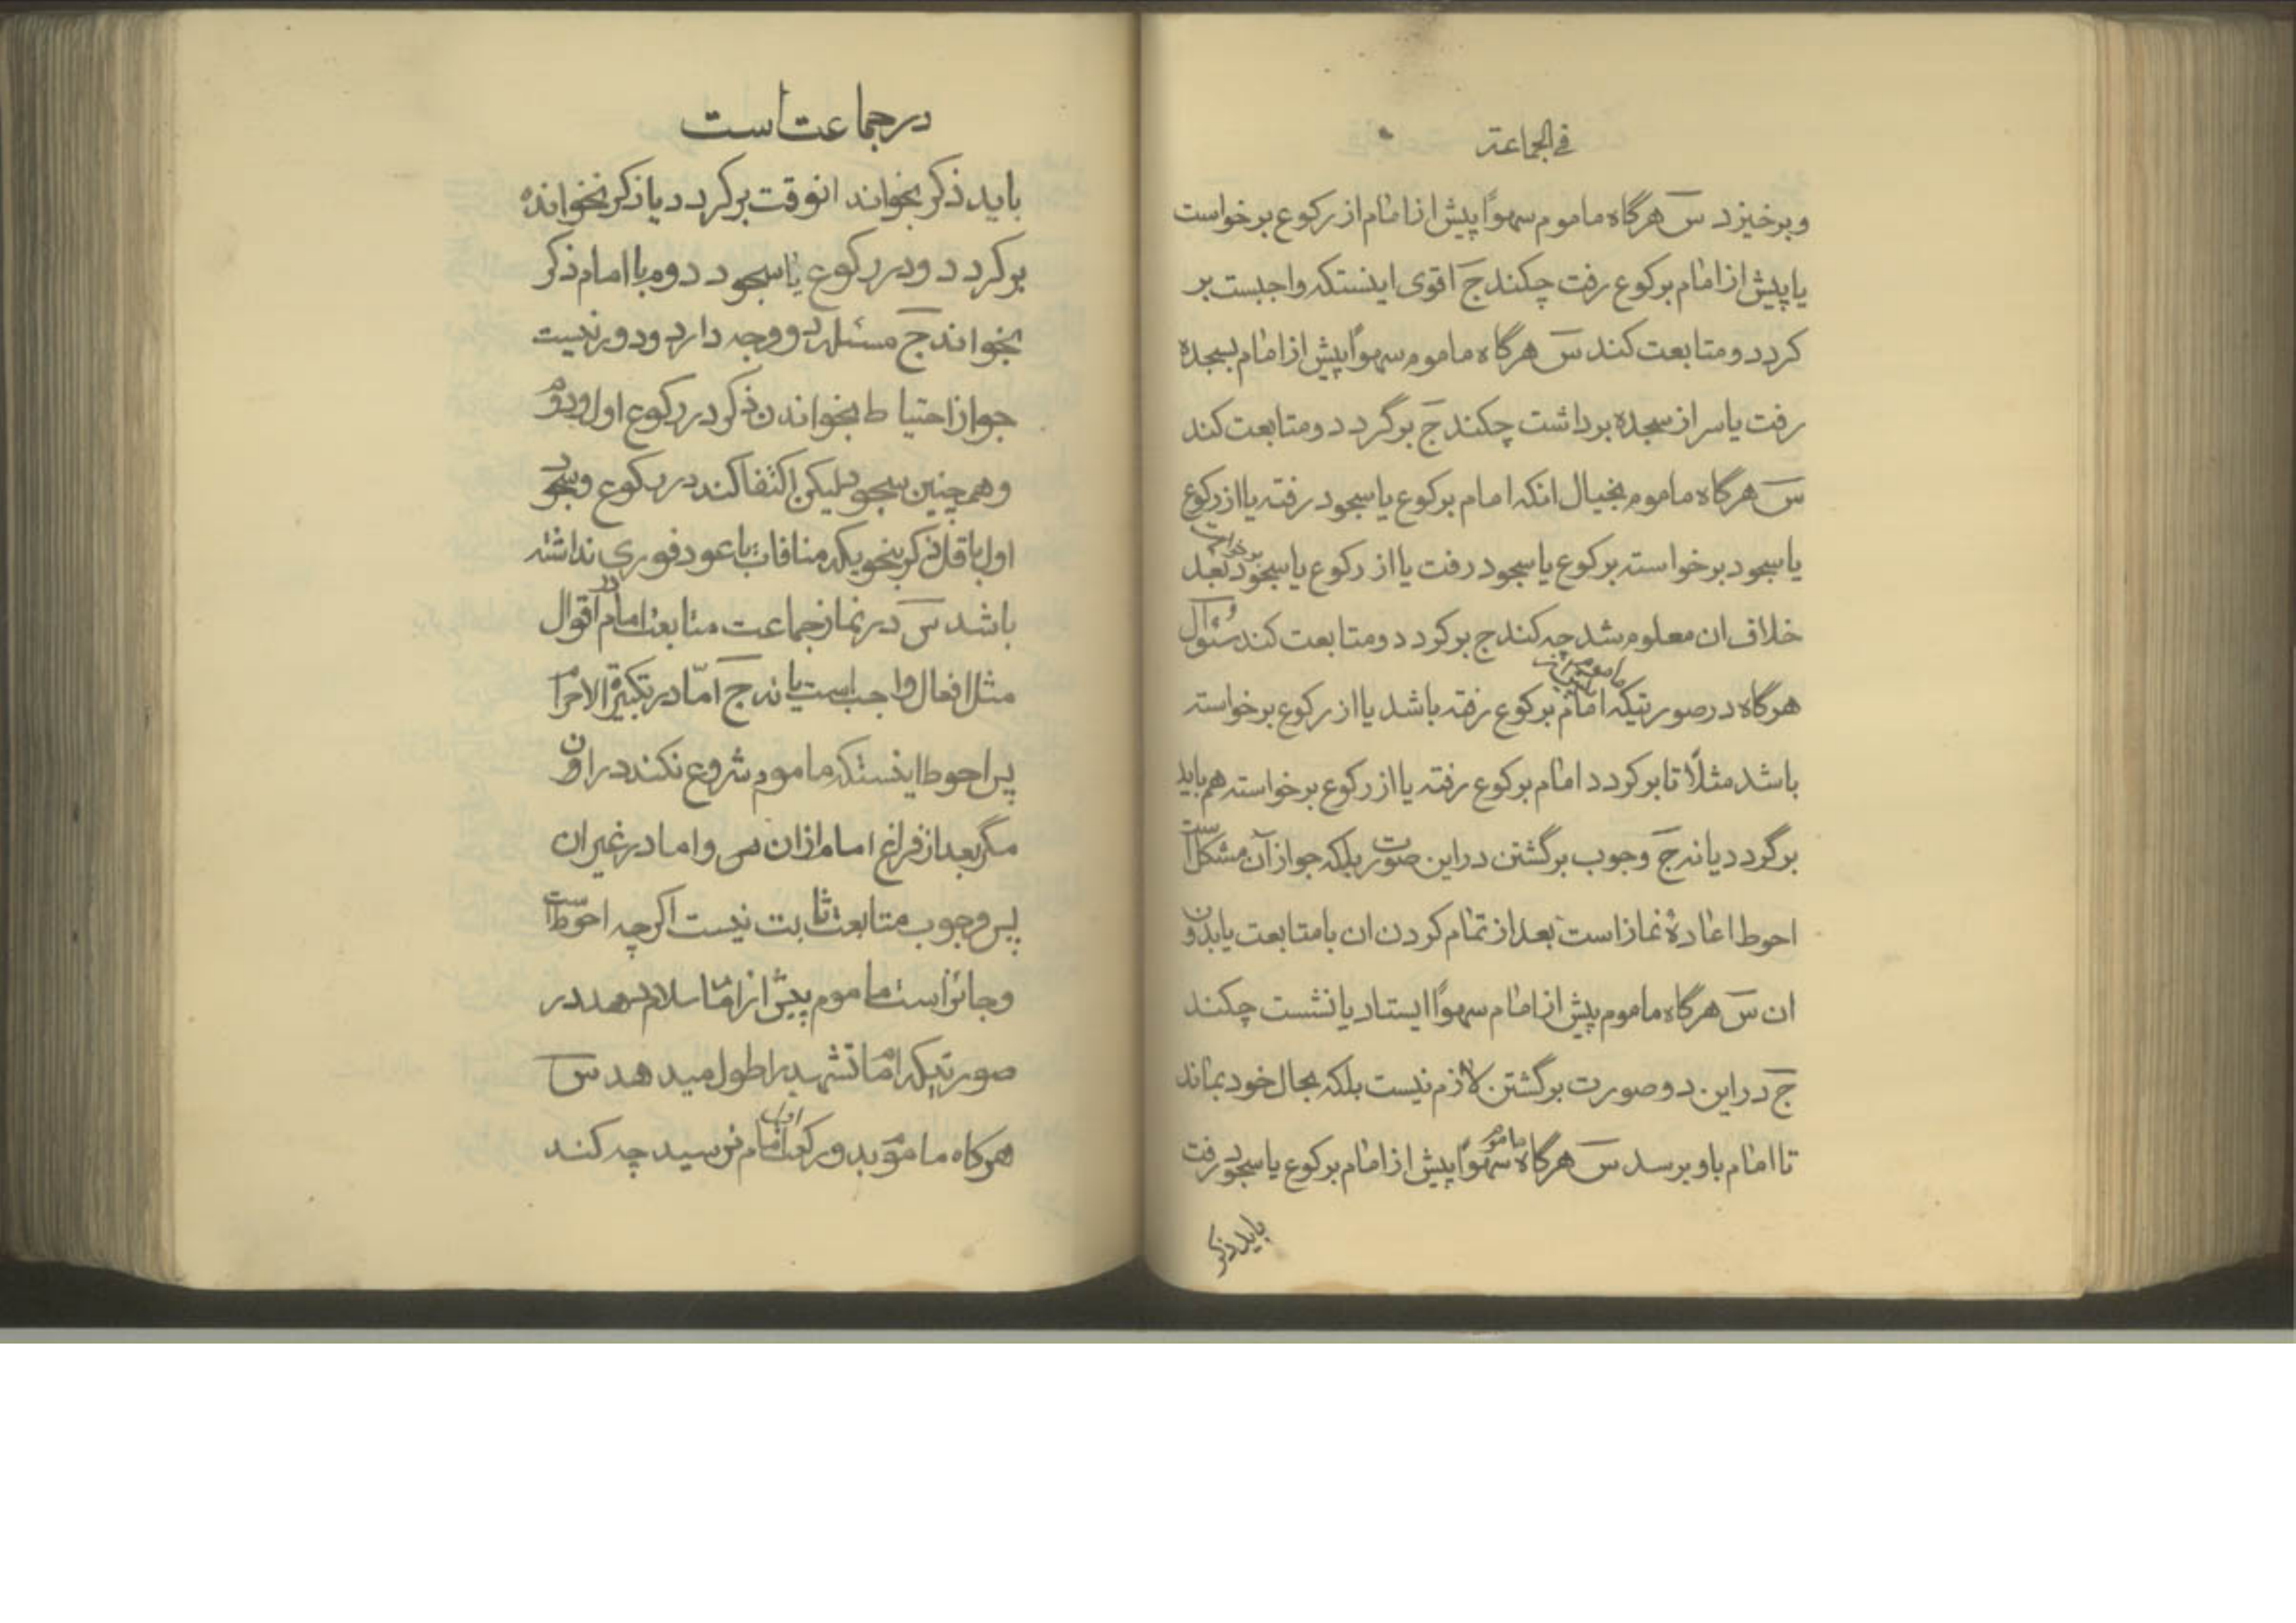 فی الجماعة
و برخیزد س هرگاه ماموم سهوًا پیش از امام از رکوع برخواست
یا پیش از امام برکوع رفت چکند ج اقوی اینستکه واجبست بر
کردد و متابعت کند س هرگاه ماموم سهوًا پیش از امام بسجده
رفت یا سر از سجده برداشت چکند ج برگردد و متابعت کند
س هرگاه ماموم بخیال انکه امام برکوع یا سجود رفته یا از رکوع
یا سجود برخواسته برکوع یا سجود رفت یا از رکوع یا سجود برخواست بعد
خلاف ان معلوم شد چه کند ج برکردد و متابعت کند سئوال
هرگاه در صورتیکه امام برکوع نرفته باشد یا از رکوع برخواسته
باشد مثلًا تا برکردد امام برکوع رفته یا از رکوع برخواسته هم باید
برگردد یا نه ج وجوب برگشتن در این صورت بلکه جواز آن مشکل است
احوط اعادهٔ نماز است بعد از تمام کردن ان با متابعت یا بدون
ان س هرگاه ماموم پیش از امام سهوًا ایستاد یا نشست چکند
ج در این دو صورت برگشتن لازم نیست بلکه بحال خود بماند
تا امام باو برسد س هرگاه ماموم سهوًا پیش از امام برکوع یا سجود رفت
باید ذکر
در جماعت است
باید ذکر بخواند انوقت برکردد یا ذکر نخوانده
برکردد و در رکوع یا سجود دوم با امام ذکر
بخواند ج مسئله دو وجه دارد و دور نیست
جواز احتیاط بخواندن ذکر در رکوع اول و دوم
و همچنین سجود لیکن اکتفا کند در رکوع و سجود
اول باقل ذکر بنحویکه منافات با عود فوری نداشته
باشد س در نماز جماعت متابعت امام در اقوال
مثل افعال واجب است یا نه ج امّا در تکبیرة الاحرام
پس احوط اینستکه ماموم شروع نکند در اون
مگر بعد از فراغ امام از ان س و اما در غیر ان
پس وجوب متابعت ثابت نیست اکرچه احوط است
و جائز است ماموم پیش از امام سلام بدهد در
صورتیکه امام تشهد را طول میدهد س
هرکاه ماموم بدو رکعت اول امام نرسید چه کند